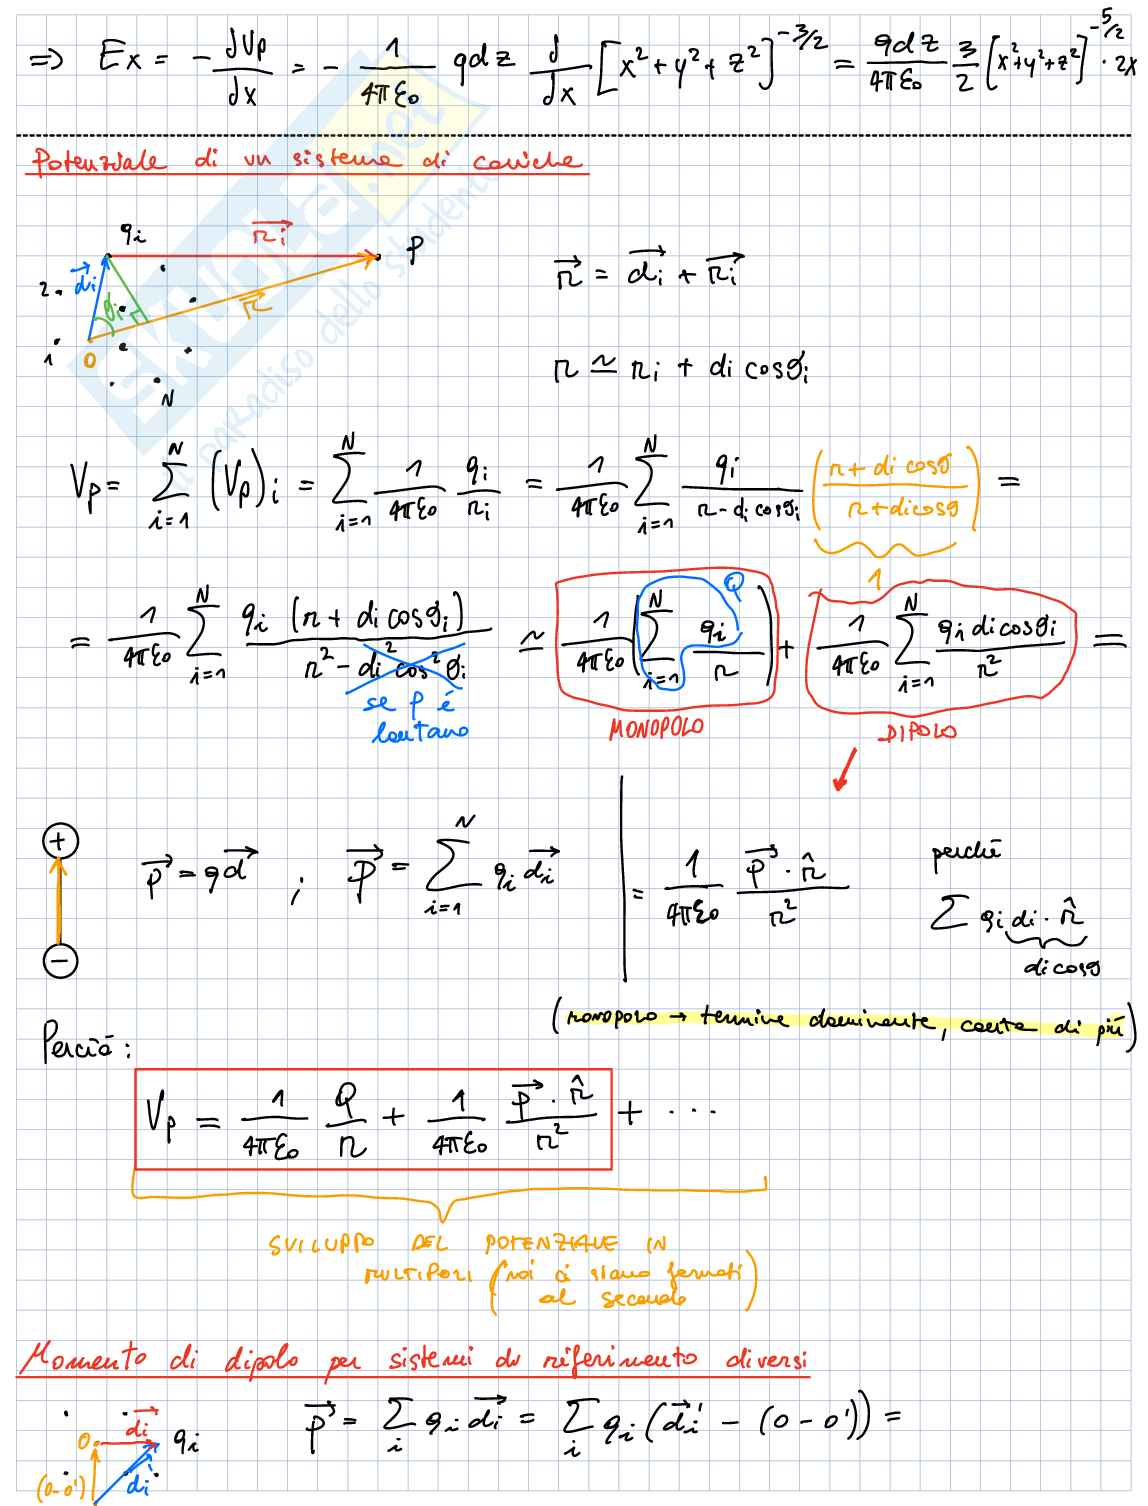 ⇒ Ex = - dVp/dx = - 1/4πε₀ qdz d/dx [x² + y² + z²]^-3/2 = qdz/4πε₀ 3/2 [x²+y²+z²]^-5/2 · 2x
Potenziale di un sistema di cariche
qi ri→ P
di→ r→ = di→ + ri→
2 θi r→
1 0
N r ≃ ri + di cosθi
Vp = Σ(i=1, N) (Vp)i = Σ(i=1, N) 1/4πε₀ qi/ri = 1/4πε₀ Σ(i=1, N) qi/(r - di cosθi) ((r + di cosθ)/(r + di cosθ)) =
1
= 1/4πε₀ Σ(i=1, N) qi (r + di cosθi)/(r² - di² cos²θi) ≃ 1/4πε₀ (Σ(i=1, N) qi/r) + 1/4πε₀ Σ(i=1, N) qi di cosθi/r² =
Q
se P è
lontano
MONOPOLO DIPOLO
+
-
p→ = qd→ ; p→ = Σ(i=1, N) qi di→
= 1/4πε₀ p→ · r̂/r²
perché
Σ qi di · r̂
di cosθ
(MONOPOLO → termine dominante, conta di più)
Perciò:
Vp = 1/4πε₀ Q/r + 1/4πε₀ p→ · r̂/r² + ...
SVILUPPO DEL POTENZIALE IN
MULTIPOLI (noi ci siamo fermati
al secondo)
Momento di dipolo per sistemi di riferimento diversi
p→ = Σi qi di→ = Σi qi (di→' - (0 - 0')) =
di→
0 qi
(0-0') di'
SKUOLA.net
paradiso dello studente